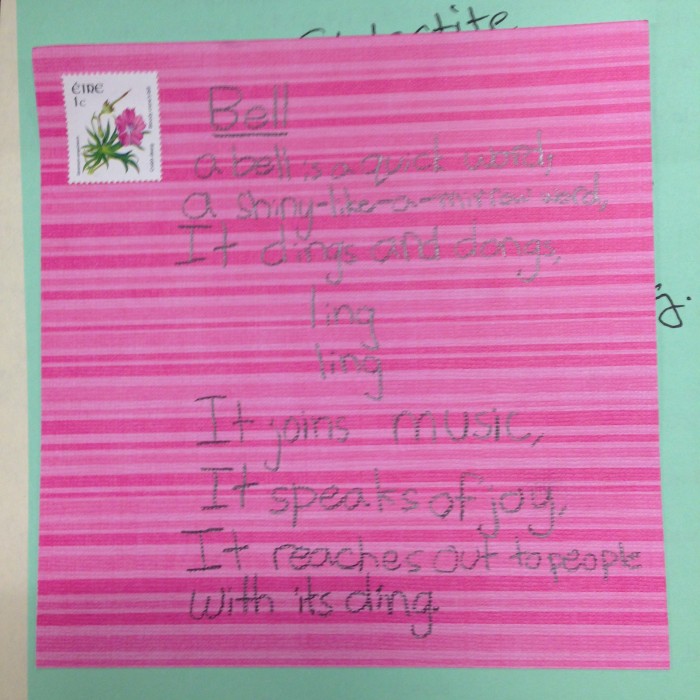 Stalactite
ÉIRE
1c
Bell
a bell is a quick word,
a shiny-like-a-mirror word,
It dings and dongs,
ling
ling
y.
It joins music,
It speaks of joy,
It reaches out to people
with its ding.